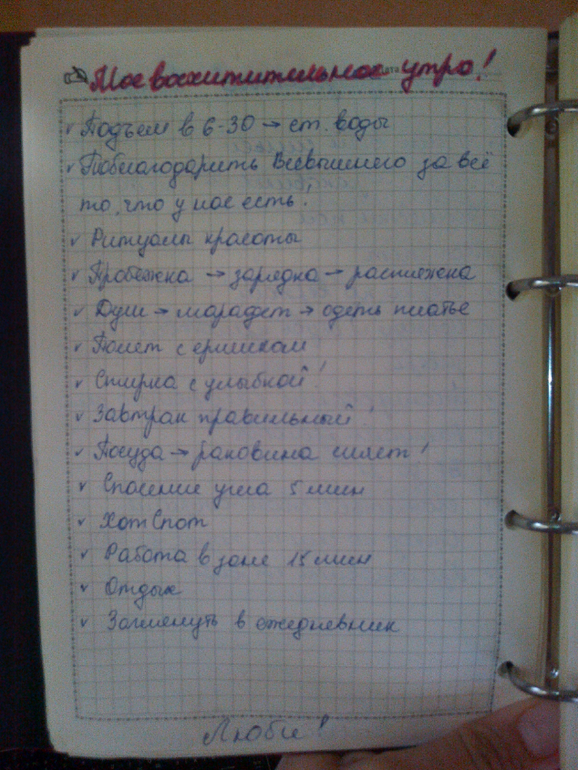 Мое восхитительное утро!
Подъем в 6-30 → ст. воды
Поблагодарить Всевышнего за всё
то, что у нас есть.
Ритуалы красоты
Пробежка → зарядка → растяжка
Душ → марафет → одеть платье
Полет с ершиком
Стирка с улыбкой!
Завтрак правильный!
Посуда → раковина сияет!
Спасение угла 5 мин
ХотСпот
Работа в зоне 15 мин
Отдых
Заглянуть в ежедневник
Люби!